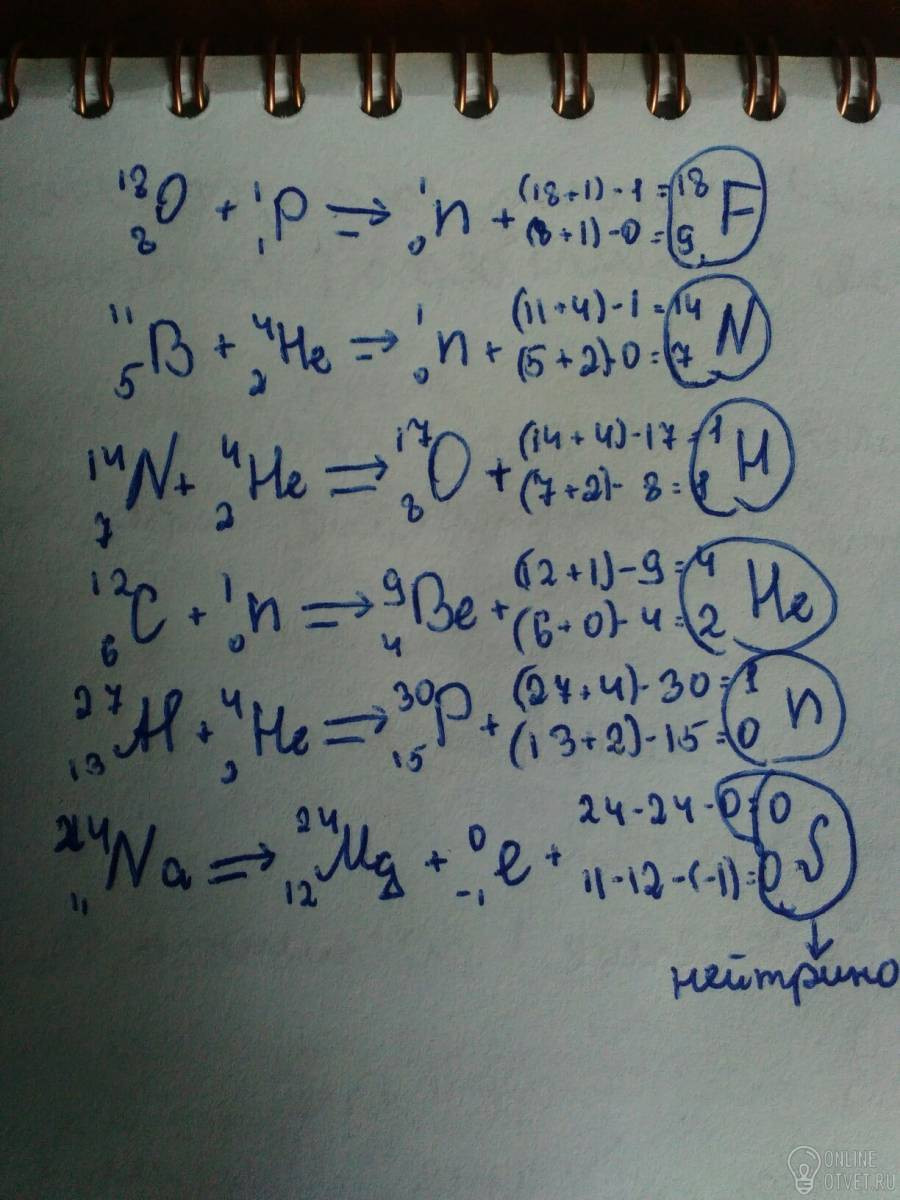 ¹⁸₈O + ¹₁P ⇒ ¹₀n + (18+1)-1=¹⁸ F
(8+1)-0=₉
¹¹₅B + ⁴₂He ⇒ ¹₀n + (11+4)-1=¹⁴ N
(5+2)-0=₇
¹⁴₇N + ⁴₂He ⇒ ¹⁷₈O + (14+4)-17=¹ H
(7+2)-8=₁
¹²₆C + ¹₀n ⇒ ⁹₄Be + (12+1)-9=⁴ He
(6+0)-4=₂
²⁷₁₃Al + ⁴₂He ⇒ ³⁰₁₅P + (27+4)-30=¹ n
(13+2)-15=₀
²⁴₁₁Na ⇒ ²⁴₁₂Mg + ⁰₋₁e + 24-24-0=0
11-12-(-1)=0
↓
нейтрино
ONLINE
OTVET.RU